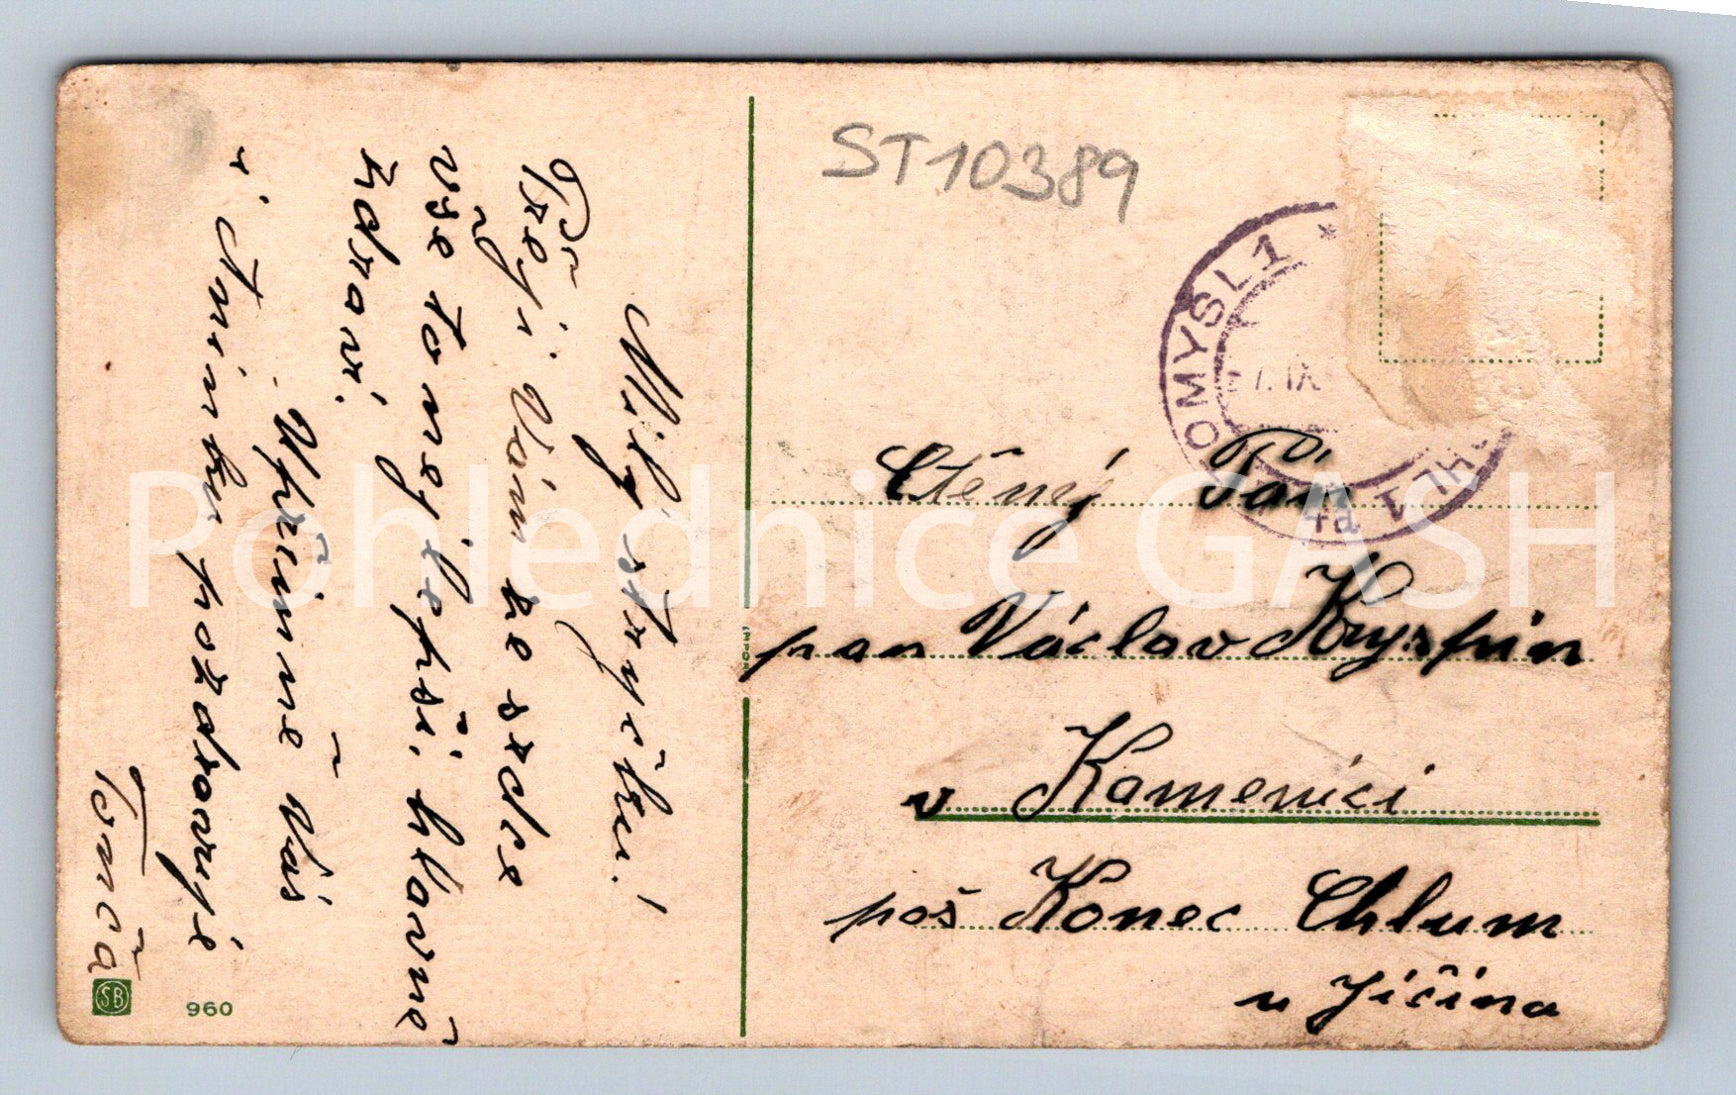 Milý strýčku!
Přeji Vám ke srdce
vše to nejlepší, hlavně
zdraví.
Upřímně Vás
i Aninku pozdravuje
Tonča
SB
960
ST10389
OMYSL 1 *
IX
Ctěný Pán
pan Václav Kryšpín
v Kamenici
poš Konec Chlum
u Jičína
Pohlednice GASH